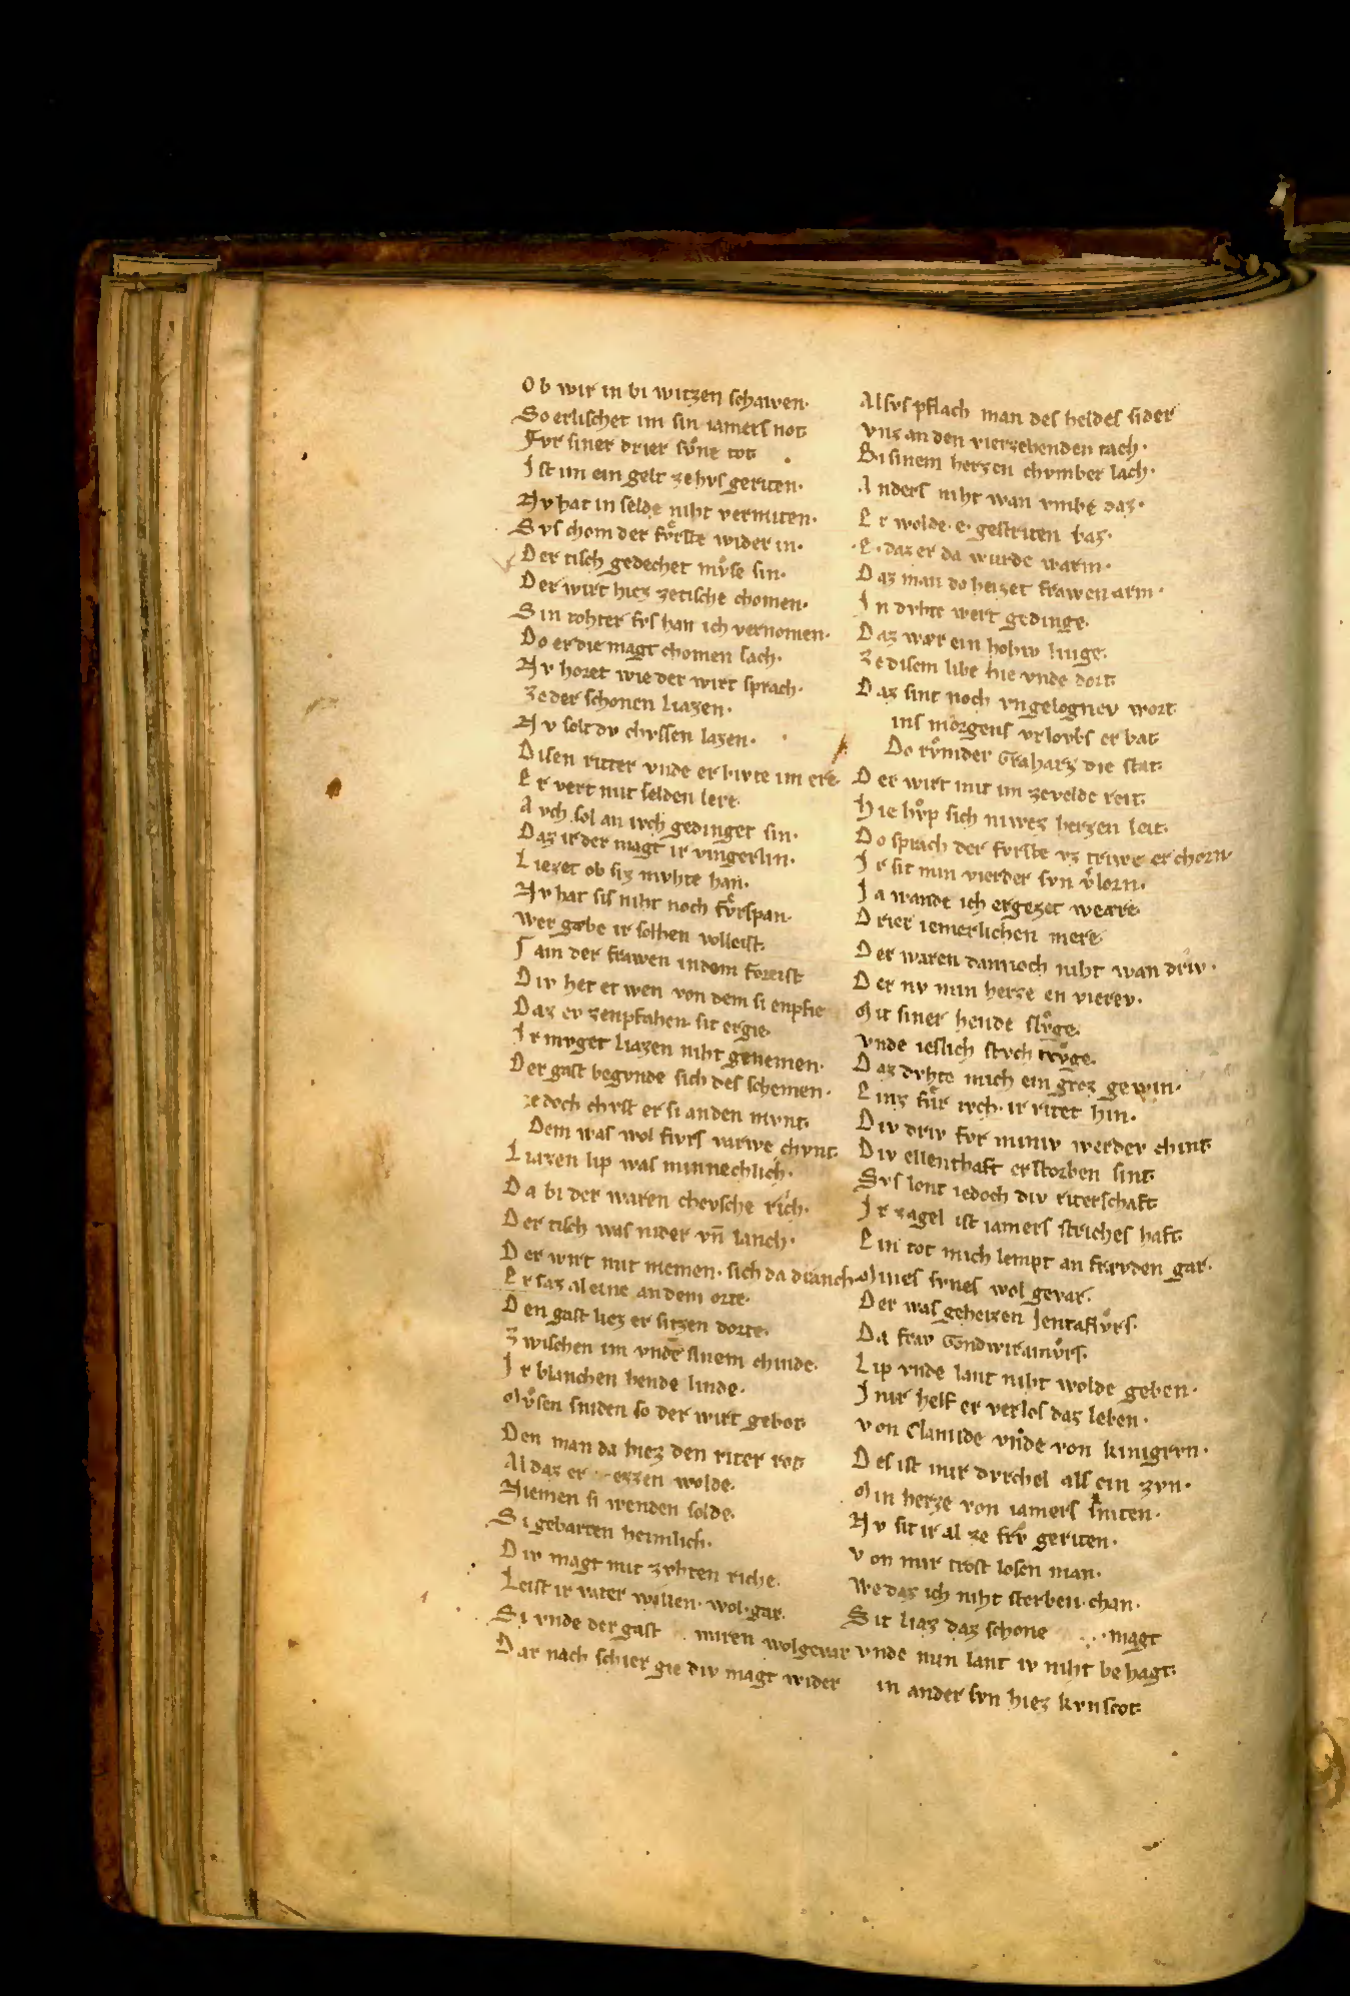 Ob wir in bi witzen schawen·
So erlischet im sin iamers not
Fvr siner drier svͦne tot
Ist im ein gelt ze hvs geriten·
Nv hat in selde niht vermiten·
Svs chom der fvͤrste wider in·
Der tisch gedechet mvͤse sin·
Der wirt hiez ze tische chomen·
Sin tohter svs han ich vernomen·
Do er die magt chomen sach·
Nv horet wie der wirt sprach·
Ze der schonen liazen·
Nv solt dv chvssen lazen·
Disen ritter vnde er bivte im ere
Er vert mit selden lere·
Avch sol an ivch gedinget sin·
Daz ir der magt ir vingerlin·
Liezet ob siz mvhte han·
Nv hat sis niht noch fvͤrspan·
Wer gæbe ir solhen volleist·
Sam der frawen in dem foreist
Div het et wen von dem si enpfie
Daz ev zenpfahen sit ergie·
Ir mvget liazen niht genemen·
Der gast begvnde sich des schemen·
Ie doch chvst er si an den mvnt·
Dem was wol fivrs varwe chvnt·
Liazen lip was minnechlich·
Da bi der waren chevsche rich·
Der tisch was nider vn̄ lanch·
Der wirt mit niemen· sich da dranch
Er saz al eine an dem orte·
Den gast liez er sitzen dorte·
Zwischen im vnde sinem chinde·
Ir blanchen hende linde·
Mvͦsen sniden so der wirt gebot
Den man da hiez den riter rot
Al daz er ezzen wolde·
Niemen si wenden solde·
Si gebarten heimlich·
Div magt mit zvhten riche·
Leist ir vater willen· wol·gar·
Si vnde der gast waren wolgevar
Dar nach schier gie div magt wider
Alsvs pflach man des heldes sider
vnz an den vierzehenden tach·
Bi sinem herzen chvmber lach·
Anders niht wan vmbe daz·
Er wolde·e·gestriten baz·
·E·daz er da wurde warm·
Daz man do heizet frawen arm·
In dvhte wert gedinge·
Daz wær ein hohiv linge·
Ze disem libe hie vnde dort
Daz sint noch vngelognev wort
ins morgens vrlovbs er bat
Do rvͦmder Graharz die stat·
Der wirt mit im zevelde reit·
Hie hvͦp sich niwez herzen leit·
Do sprach der fvrste vz triwe er chorn·
Ir sit min vierder svn vͤlorn·
Ia wande ich ergezet weære
Drier iemerlichen mere
Der waren dannoch niht wan driv·
Der nv min herze en vierev·
Mit siner hende slvͤge·
vnde ieslich stvch trvͤge·
Daz dvhte mich ein groz gewin·
Einz fvͤr ivch· ir ritet hin·
Div driv fvr miniv werdev chint
Div ellenthaft erstorben sint·
Svs lont iedoch div riterschaft
Ir zagel ist iamers striches haft·
Ein tot mich lempt an frævden gar·
Mines svnes wol gevar·
Der was geheizen Ientaflvͤrs·
Da frav Gondwiramvͤrs·
Lip vnde lant niht wolde geben·
In mir helf er verlos daz leben·
von Clamide vnde von kingrvn·
Des ist mir dvrchel als ein zvn·
Min herze von iamers sniten·
Nv sit ir al ze frv geriten·
von mir trost losen man·
We daz ich niht sterben chan·
Sit liaz daz schone magt
vnde min lant iv niht be hagt·
in ander svn hiez kvnscot·